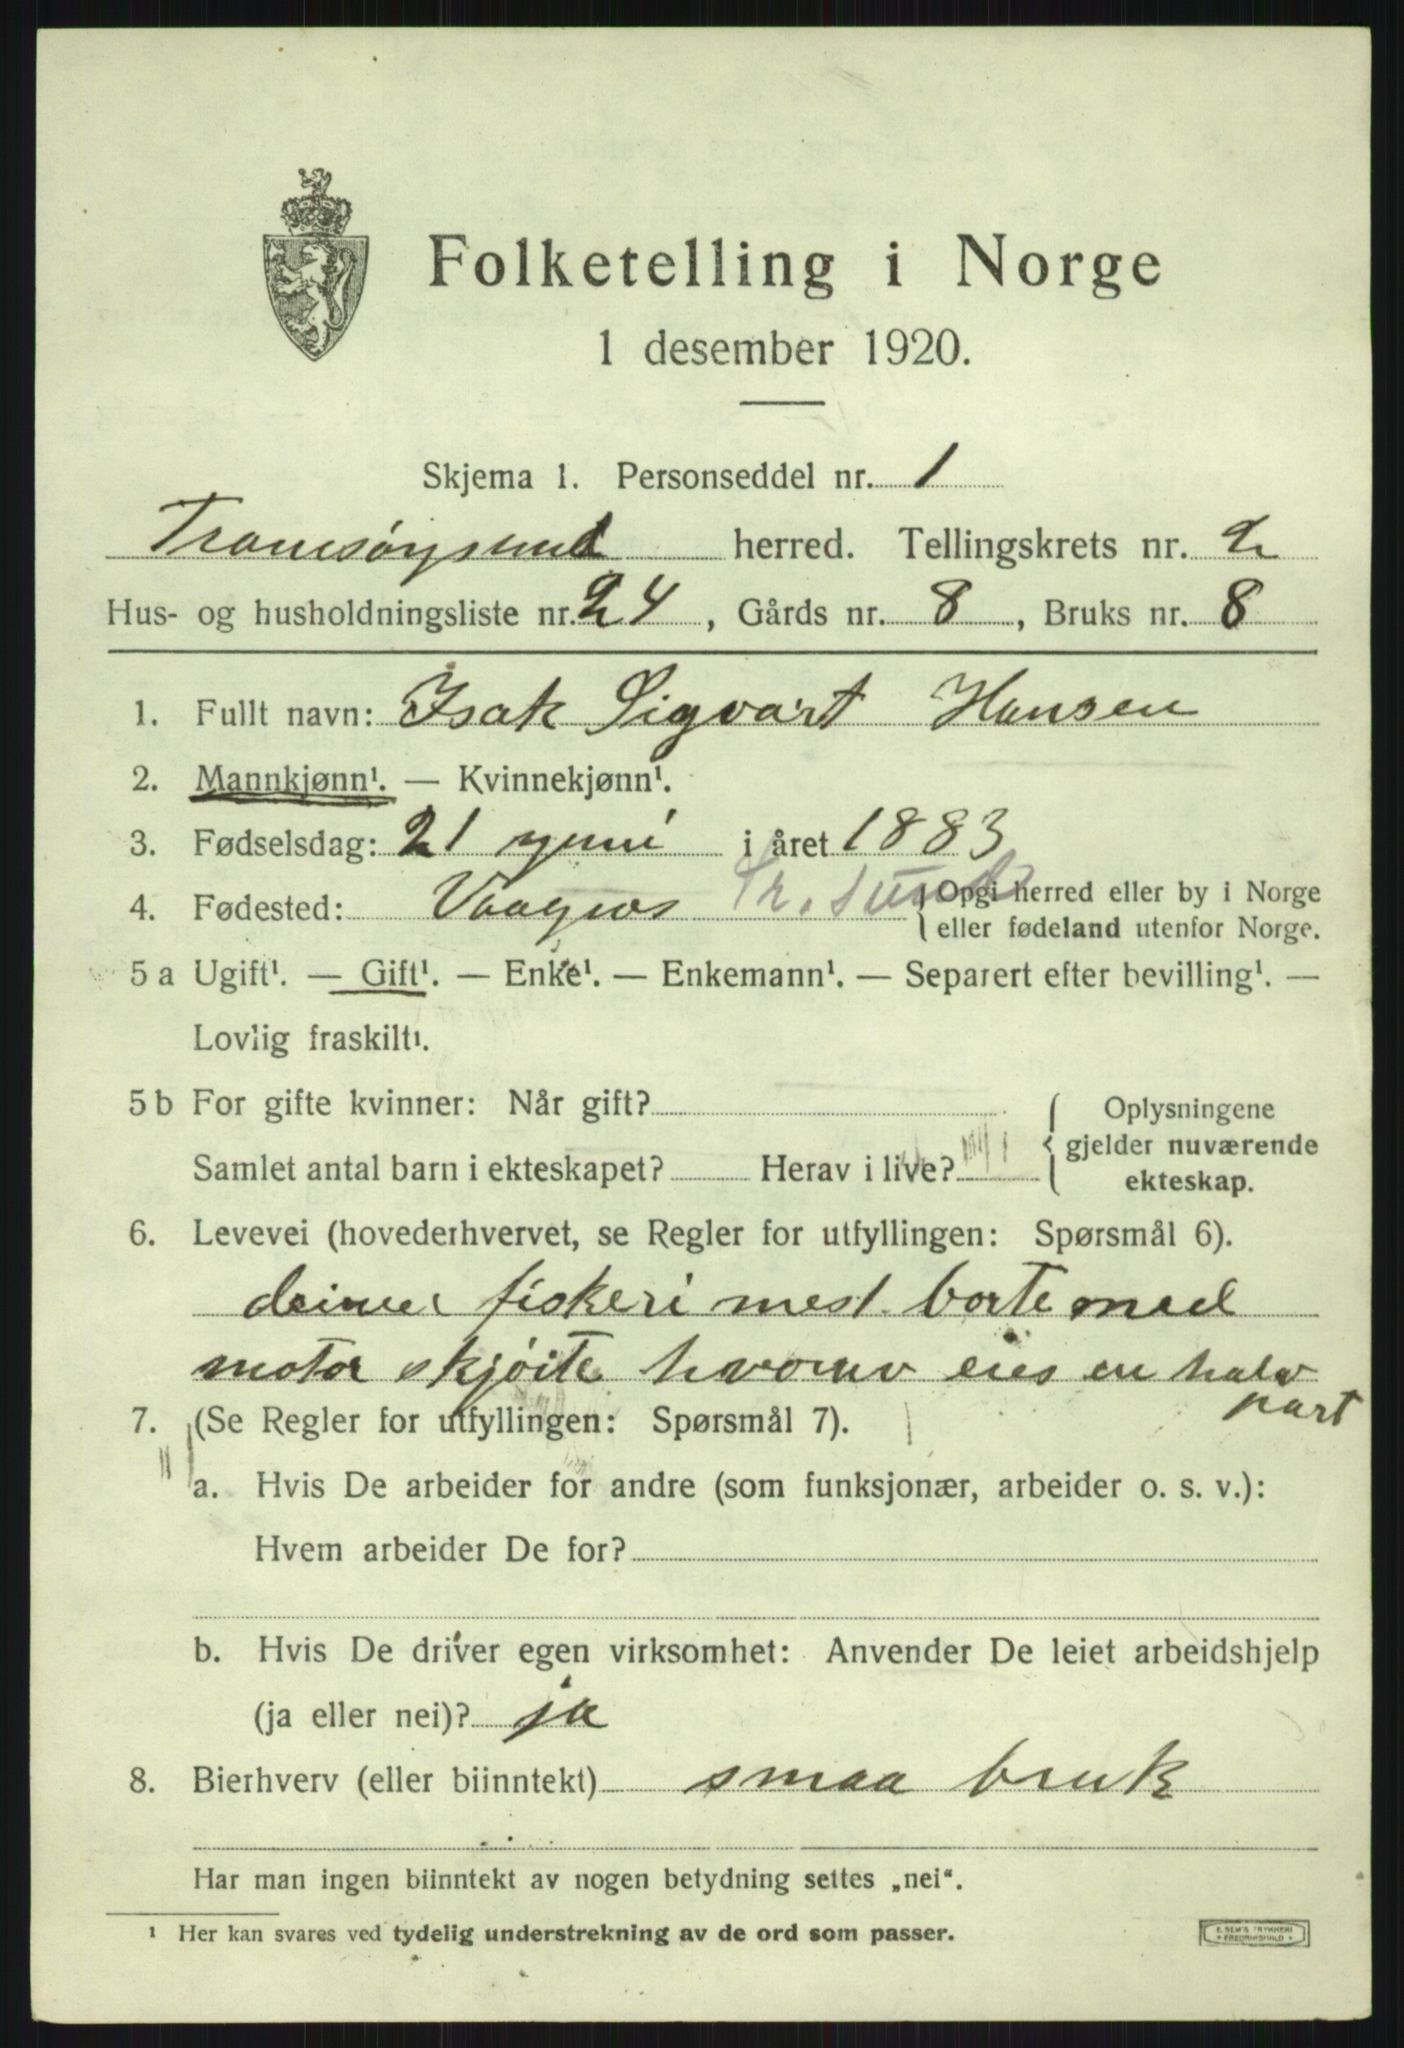 Folketelling i Norge
1 desember 1920.
Skjema 1. Personseddel nr. 1
Tromsøysund herred. Tellingskrets nr. 2
Hus- og husholdningsliste nr. 24, Gårds nr. 8, Bruks nr. 8
1. Fullt navn: Isak Sigvart Hansen
2. Mannkjønn¹. — Kvinnekjønn¹.
3. Fødselsdag: 21 yuni i året 1883
4. Fødested: Vaagnes Tr. sund { Opgi herred eller by i Norge
eller fødeland utenfor Norge.
5 a Ugift¹. — Gift¹. — Enke¹. — Enkemann¹. — Separert efter bevilling¹. —
Lovlig fraskilt¹.
5 b For gifte kvinner: Når gift? { Oplysningene
gjelder nuværende
ekteskap.
Samlet antal barn i ekteskapet? Herav i live?
6. Levevei (hovederhvervet, se Regler for utfyllingen: Spørsmål 6).
driver fiskeri mest borte med
motor skjöite hvorav eies en halv
part
7. (Se Regler for utfyllingen: Spørsmål 7).
a. Hvis De arbeider for andre (som funksjonær, arbeider o. s. v.):
Hvem arbeider De for?
b. Hvis De driver egen virksomhet: Anvender De leiet arbeidshjelp
(ja eller nei)? ja
8. Bierhverv (eller biinntekt) smaa bruk
Har man ingen biinntekt av nogen betydning settes „nei“.
¹ Her kan svares ved tydelig understrekning av de ord som passer.
TRYKKERI
FREDRIKSHALD